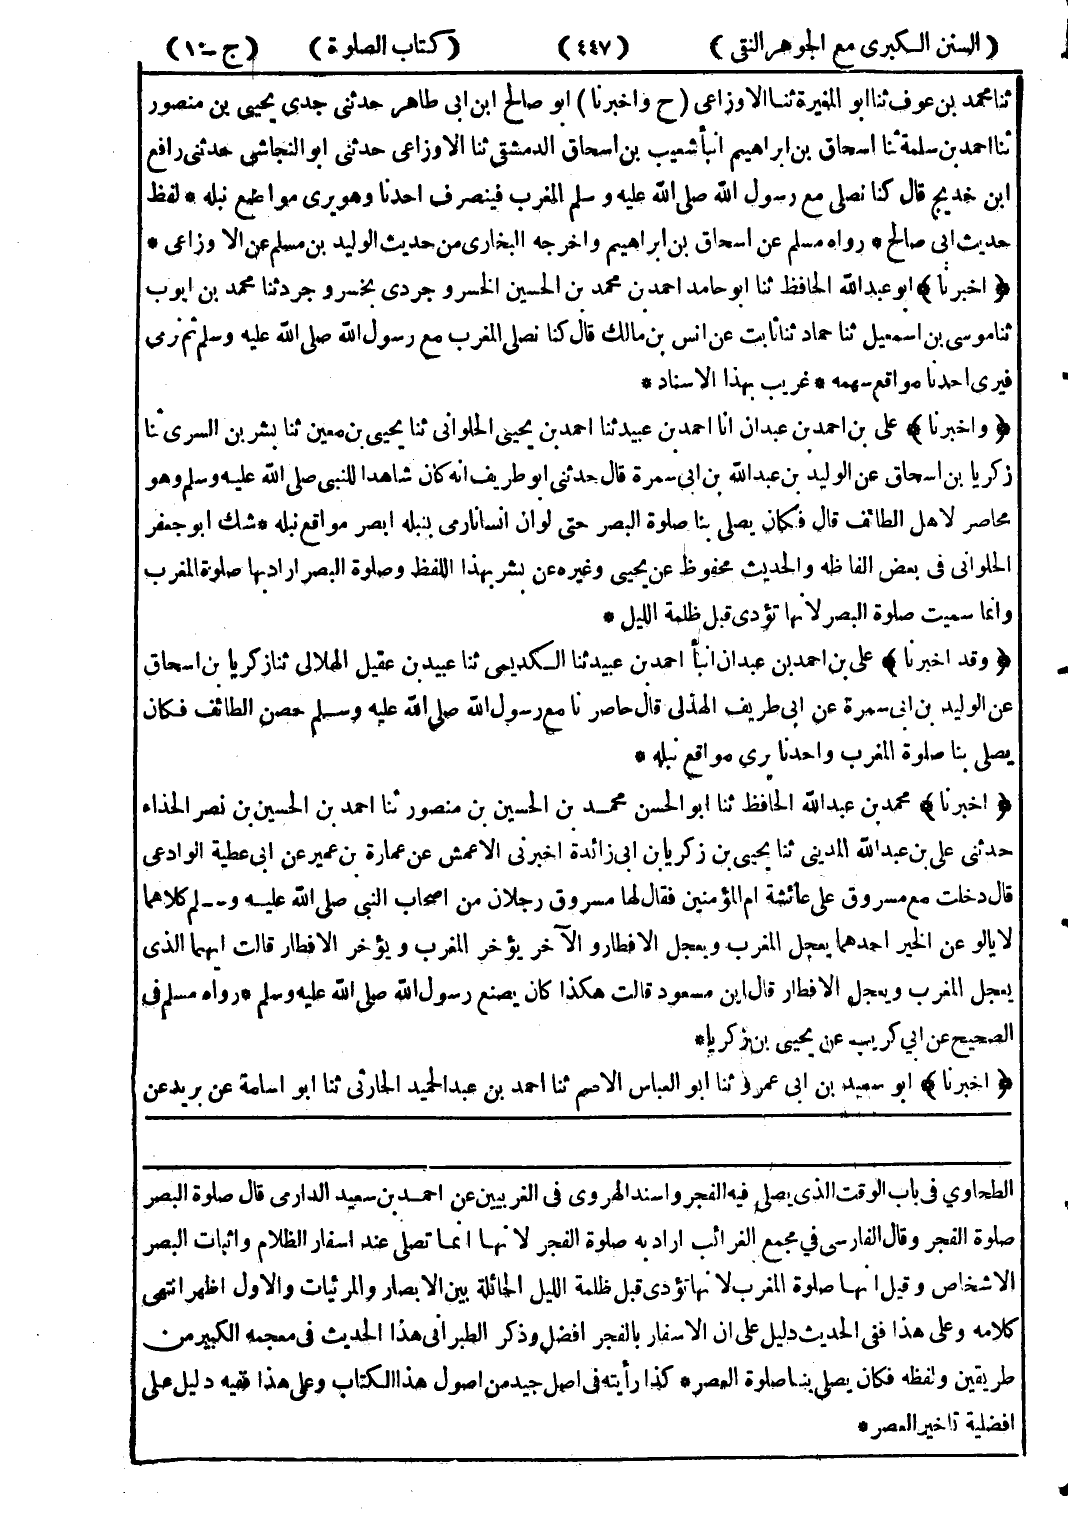 (السنن الكبرى مع الجوهر النقى) (٤٤٧) (كتاب الصلوة) (ج - ١)
ثنا محمد بن عوف ثنا ابو المغيرة ثنا الاوزاعى (ح واخبرنا) ابو صالح ابن ابى طاهر حدثنى جدى يحيى بن منصور
ثنا احمد بن سلمة ثنا اسحاق بن ابراهيم انبأ شعيب بن اسحاق الدمشقى ثنا الاوزاعى حدثنى ابو النجاشى حدثنى رافع
ابن خديج قال كنا نصلى مع رسول الله صلى الله عليه وسلم المغرب فينصرف احدنا وهو يرى مواقع نبله * لفظ
حديث ابى صالح * رواه مسلم عن اسحاق بن ابراهيم واخرجه البخارى من حديث الوليد بن مسلم عن الاوزاعى *
﴿ اخبرنا ﴾ ابو عبدالله الحافظ ثنا ابو حامد احمد بن محمد بن الحسين الخسرو جردى بخسرو جرد ثنا محمد بن ايوب
ثنا موسى بن اسمعيل ثنا حماد ثنا ثابت عن انس بن مالك قال كنا نصلى المغرب مع رسول الله صلى الله عليه وسلم ثم نرمى
فيرى احدنا مواقع سهمه * غريب بهذا الاسناد *
﴿ واخبرنا ﴾ على بن احمد بن عبدان انا احمد بن عبيد ثنا احمد بن يحيى الحلوانى ثنا يحيى بن معين ثنا بشر بن السرى ثنا
زكريا بن اسحاق عن الوليد بن عبدالله بن ابى سمرة قال حدثنى ابو طريف انه كان شاهدا للنبى صلى الله عليه وسلم وهو
محاصر لاهل الطائف قال فكان يصلى بنا صلوة البصر حتى لو ان انسانا رمى بنبله ابصر مواقع نبله * شك ابو جعفر
الحلوانى فى بعض الفاظه والحديث محفوظ عن يحيى وغيره عن بشر بهذا اللفظ وصلوة البصر اراد بها صلوة المغرب
وانما سميت صلوة البصر لانها تؤدى قبل ظلمة الليل *
﴿ وقد اخبرنا ﴾ على بن احمد بن عبدان انبأ احمد بن عبيد ثنا الكديمى ثنا عبيد بن عقيل الهلالى ثنا زكريا بن اسحاق
عن الوليد بن ابى سمرة عن ابى طريف الهذلى قال حاصرنا مع رسول الله صلى الله عليه وسلم حصن الطائف فكان
يصلى بنا صلوة المغرب واحدنا يرى مواقع نبله *
﴿ اخبرنا ﴾ محمد بن عبدالله الحافظ ثنا ابو الحسن محمد بن الحسين بن منصور ثنا احمد بن الحسين بن نصر الحذاء
حدثنى على بن عبدالله المدينى ثنا يحيى بن زكريا بن ابى زائدة اخبرنى الاعمش عن عمارة بن عمير عن ابى عطية الوادعى
قال دخلت مع مسروق على عائشة ام المؤمنين فقال لها مسروق رجلان من اصحاب النبى صلى الله عليه وسلم كلاهما
لا يالو عن الخير احدهما يعجل المغرب ويعجل الافطار والآخر يؤخر المغرب ويؤخر الافطار قالت ايهما الذى
يعجل المغرب ويعجل الافطار قال ابن مسعود قالت هكذا كان يصنع رسول الله صلى الله عليه وسلم * رواه مسلم فى
الصحيح عن ابي كريب عن يحيى بن زكريا *
﴿ اخبرنا ﴾ ابو سعيد بن ابى عمرو ثنا ابو العباس الاصم ثنا احمد بن عبدالحميد الحارثى ثنا ابو اسامة عن بريد عن
الطحاوي فى باب الوقت الذى يصلى فيه الفجر واسند الهروى فى الغريبين عن احمد بن سعيد الدارمى قال صلوة البصر
صلوة الفجر وقال الفارسى في مجمع الغرائب اراد به صلوة الفجر لانها انما تصلى عند اسفار الظلام واثبات البصر
الاشخاص وقيل انها صلوة المغرب لانها تؤدى قبل ظلمة الليل الحائلة بين الابصار والمرئيات والاول اظهر انتهى
كلامه وعلى هذا فنى الحديث دليل على ان الاسفار بالفجر افضل وذكر الطبرانى هذا الحديث فى معجمه الكبير من
طريقين ولفظه فكان يصلى بنا صلوة العصر * كذا رأيته فى اصل جيد من اصول هذا الكتاب وعلى هذا ففيه دليل على
افضلية تاخير العصر *